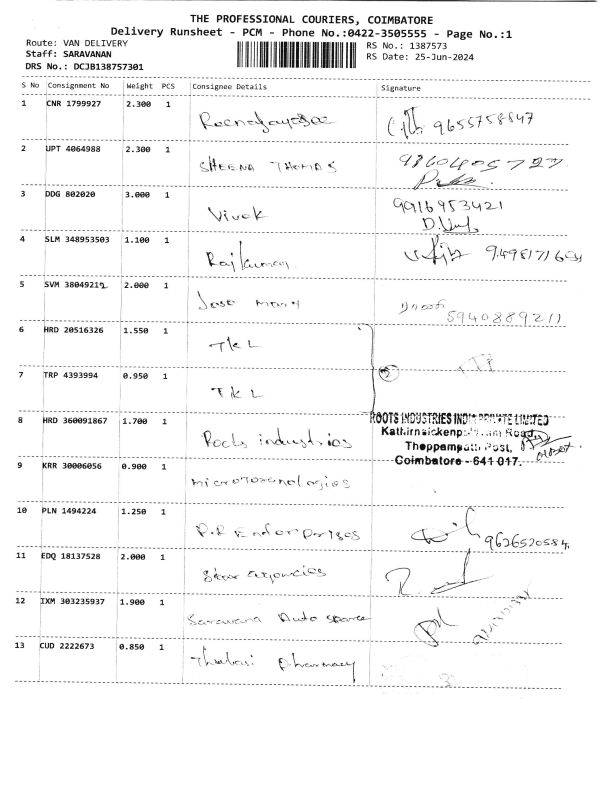 THE PROFESSIONAL COURIERS, COIMBATORE
Delivery Runsheet - PCM - Phone No.:0422-3505555 - Page No.:1
Route: VAN DELIVERY RS No.: 1387573
Staff: SARAVANAN RS Date: 25-Jun-2024
DRS No.: DCJB138757301
S No Consignment No Weight PCS Consignee Details Signature
1 CNR 1799927 2.300 1 9655758847
2 UPT 4064988 2.300 1 SHEENA THOMAS 9360405727
3 DDG 802020 3.000 1 Vivek 9916953421
4 SLM 348953503 1.100 1 Rajkumar
5 SVM 38049212 2.000 1 Jose Mary 5940889211
6 HRD 20516326 1.550 1 TKL
7 TRP 4393994 0.950 1 TKL
8 HRD 360091867 1.700 1 Roots industries
ROOTS INDUSTRIES INDIA PRIVATE LIMITED
Road,
Thoppampatti Post,
Coimbatore - 641 017.
9 KRR 30006056 0.900 1
10 PLN 1494224 1.250 1 P.R Enterprises 9626520584
11 EDQ 18137528 2.000 1 agencies
12 IXM 303235937 1.900 1 Saravana Auto spares
13 CUD 2222673 0.850 1 Thulasi pharmacy